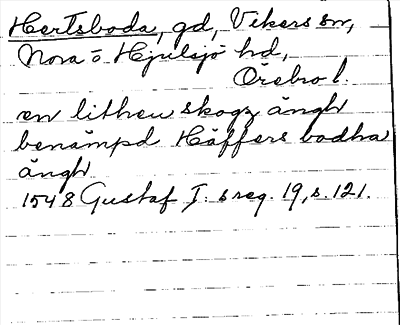 Hertsboda, gd, Vikers sn,
Nora o Hjulsjö hd,
Örebro l.
en lithen skogz ängh
benämpd Häffers bodha
ängh
1548 Gustaf I:s reg. 19, s. 121.